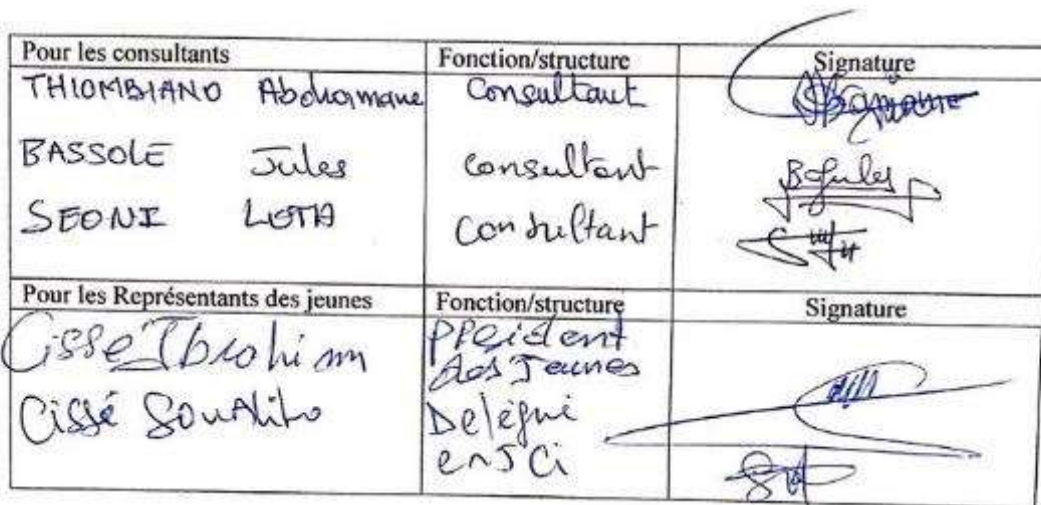 Pour les consultants Fonction/structure Signature
THIOMBIANO Abdramane Consultant
BASSOLE Jules consultant BaJules
SEONI LOTA Consultant
Pour les Représentants des jeunes Fonction/structure Signature
Cissé Ibrahim Président
des Jeunes
Cissé Délégué